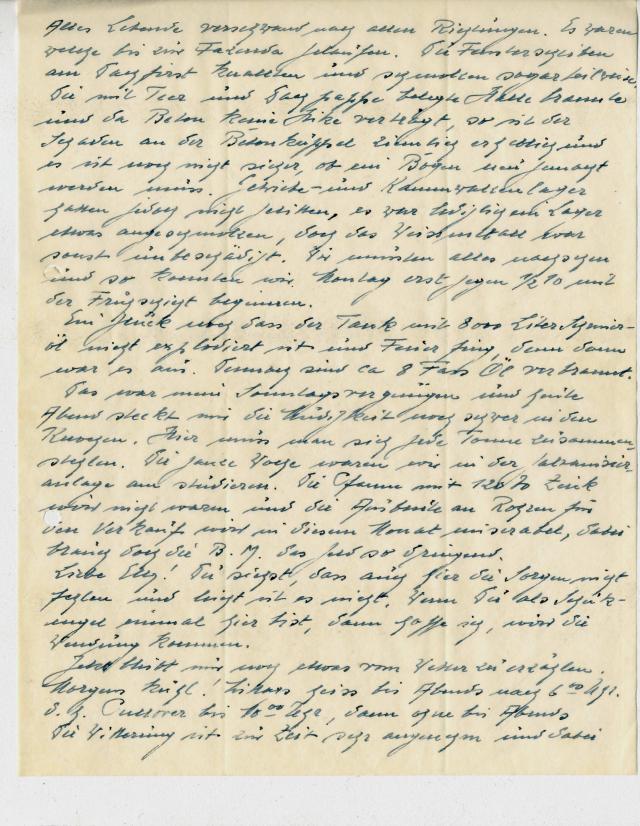 Alles Lebende verschwand nach allen Richtungen. Es waren
welche bis zur Fazenda gelaufen. Die Fensterscheiben
am Dachfirst knallten und schmolzen sogar teilweise.
Die mit Teer und Dachpappe belegte Halle brannte
und da Beton keine Hitze verträgt, so ist der
Schaden an der Betonkuppel ziemlich erheblich und
es ist noch nicht sicher, ob ein Bogen neu gemacht
werden muss. Getriebe- und Kammwalzenlager
hatten jedoch nicht gelitten, es war lediglich ein Lager
etwas angeschmolzen, doch das Weissmetall war
sonst unbeschädigt. Wir mussten alles nachsehen
und so konnten wir Montag erst gegen 1/2 10 mit
der Frühschicht beginnen.
Ein Glück noch dass der Tank mit 8000 Liter Schmier-
öl nicht explodiert ist und Feuer fing, denn dann
war es aus. Dennoch sind ca 8 Fass Öl verbrannt.
Das war mein Sonntagsvergnügen und heute
Abend steckt mir die Müdigkeit noch schwer in den
Knochen. Hier muss man sich jede Tonne zusammen-
stehlen. Die ganze Woche waren wir in der Galvanisier-
anlage am studieren. Die Pfanne mit 120 To Zink
wird nicht warm und die Ausbeute an Rohren für
den Verkauf wird in diesem Monat miserabel, dabei
braucht doch die B. M. das Geld so dringend.
Liebe Elly! Du siehst, dass auch hier die Sorgen nicht
fehlen und leicht ist es nicht. Wenn Du als Glück-
engel einmal hier bist, dann hoffe ich, wird die
Wendung kommen.
Jetzt bleibt mir noch etwas vom Wetter zu erzählen.
Morgens kühl! heiss bis Abends nach 6 00 Uhr.
d. h. Pullover bis 10 00 Uhr, dann ohne bis Abends
Die Witterung ist zur Zeit sehr angenehm und dabei